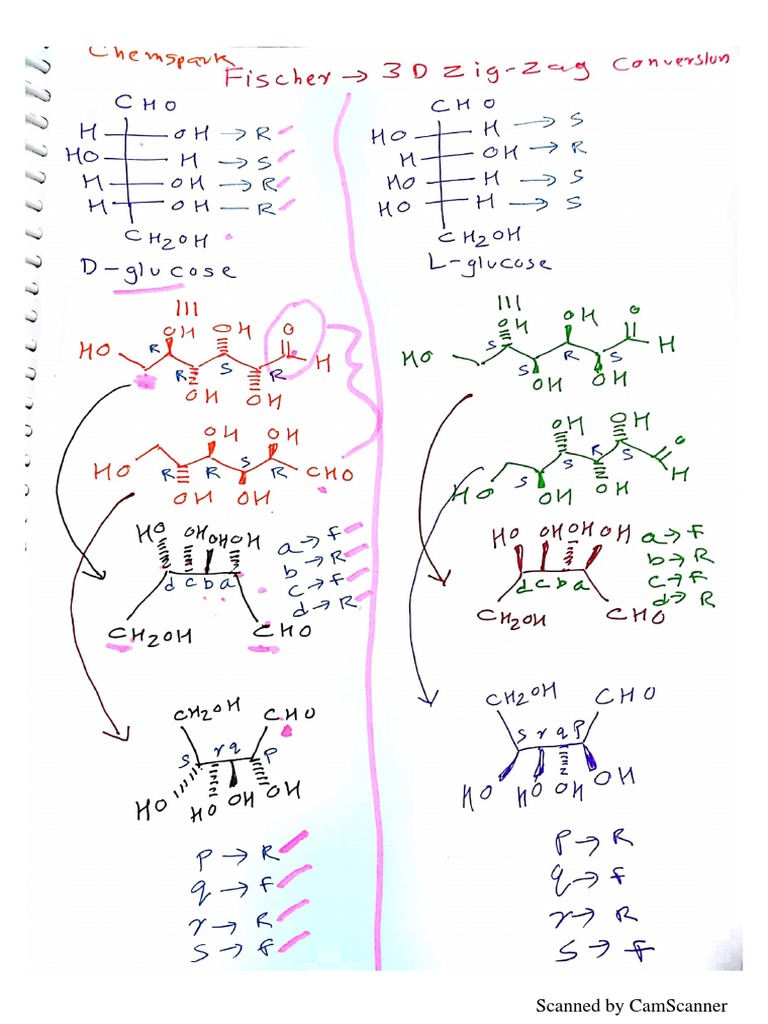 Chemspark
Fischer → 3D zig-zag conversion
CHO
H OH → R
HO H → S
H OH → R
H OH — R
CH2OH
D-glucose
CHO
HO H → S
H OH → R
HO H → S
HO H → S
CH2OH
L-glucose
OH OH O
HO R S H
R R
OH OH
OH OH
HO R R S R CHO
OH OH
HO OH OH OH
d c b a
CH2OH CHO
a → F
b → R
c → F
d → R
CH2OH CHO
S r q P
HO HO OH OH
P → R
q → F
r → R
S → F
OH OH O
HO S R S H
S
OH OH
OH OH O
R S H
HO S S
OH OH
HO OH OH OH
d c b a
CH2OH CHO
a → F
b → R
c → F
d → R
CH2OH CHO
S r q P
HO HO OH OH
P → R
q → F
r → R
S → F
Scanned by CamScanner